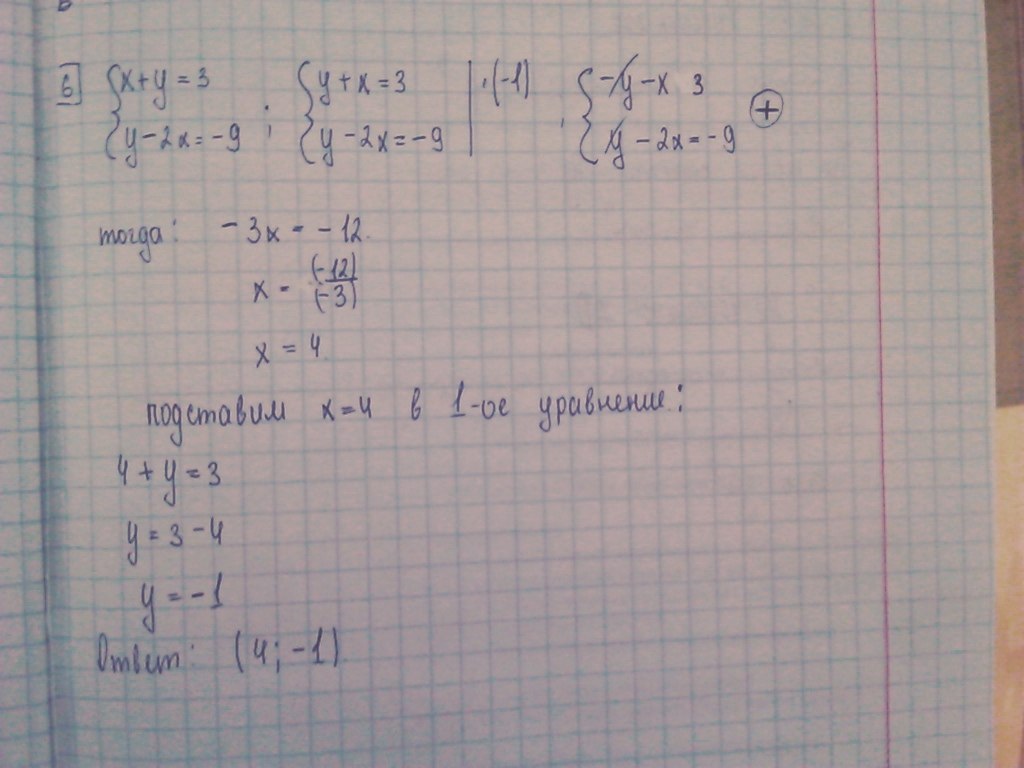 6 { x+y=3 ; { y+x=3 | ·(-1) ; { -y-x 3 (+)
{ y-2x=-9 { y-2x=-9 { y-2x=-9
тогда: -3x=-12.
x = (-12)/(-3)
x = 4
подставим x=4 в 1-ое уравнение:
4+y=3
y=3-4
y=-1
Ответ: (4; -1)